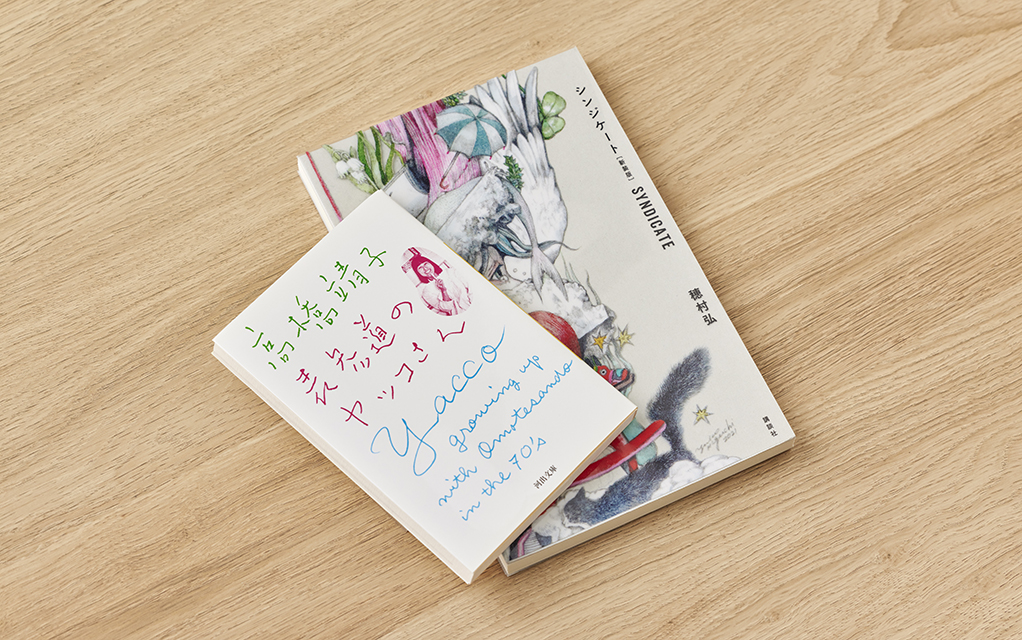 高橋靖子
表参道の
ヤッコさん
Yacco
growing up
with Omotesando
in the 70's
河出文庫
シンジケート[新装版] SYNDICATE
穂村弘
講談社
2021